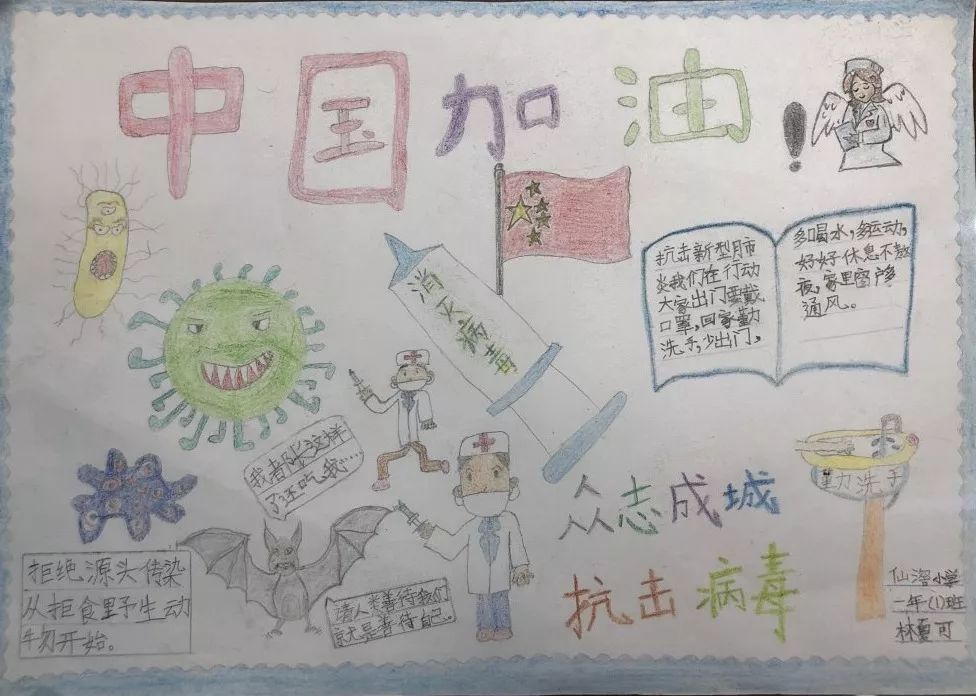 中国加油!
消灭病毒
抗击新型肺
炎我们在行动
大家出门要戴
口罩,回家勤
洗手,少出门,
多喝水,多运动,
好好休息不熬
夜,家里窗户多
通风。
我都张这样
了还吃我…
众志成城
抗击病毒
勤洗手
拒绝源头传染
从拒食野生动
物开始。
请人类善待我们
就是善待自己。
小学
一年(1)班
林夏可